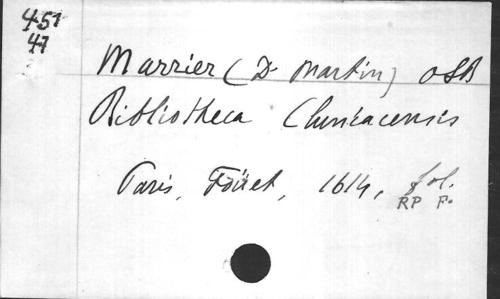 451
47
Marrier (D. Martin) OSB
Bibliotheca Cluniacensis
Paris, Foüet, 1614, fol.
RP F.